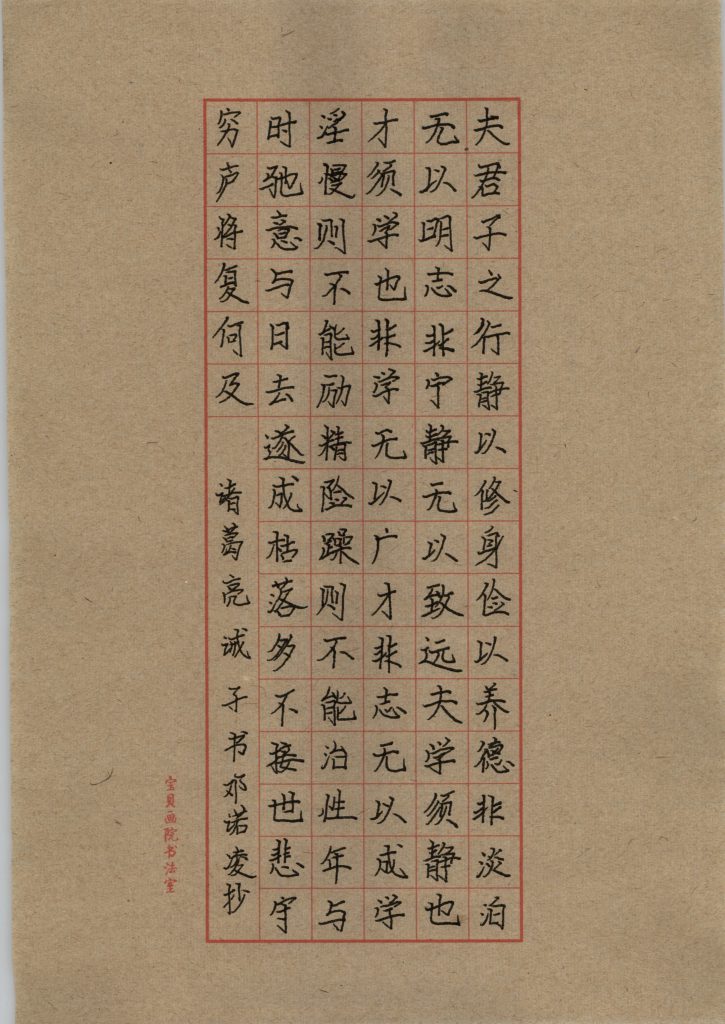 夫君子之行静以修身俭以养德非淡泊
无以明志非宁静无以致远夫学须静也
才须学也非学无以广才非志无以成学
淫慢则不能励精险躁则不能治性年与
时驰意与日去遂成枯落多不接世悲守
穷庐将复何及
诸葛亮诫子书邓诺凌抄
宝贝画院书法室